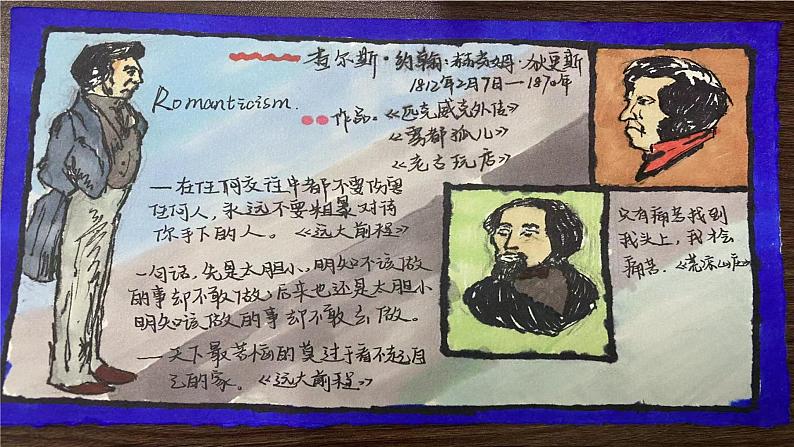 查尔斯·约翰·赫芬姆·狄更斯
1812年2月7日—1870年
Romanticism.
作品。《匹克威克外传》
《雾都孤儿》
《老古玩店》
—在任何交往中都不要伤害
任何人,永远不要粗暴对待
你手下的人。《远大前程》
一句话,先是太胆小,明知不该做
的事却不敢做,后来也还是太胆小
明知该做的事却不敢去做。
—天下最苦恼的莫过于看不起自
己的家。《远大前程》
只有痛苦找到
我头上,我才会
痛苦.《荒凉山庄》